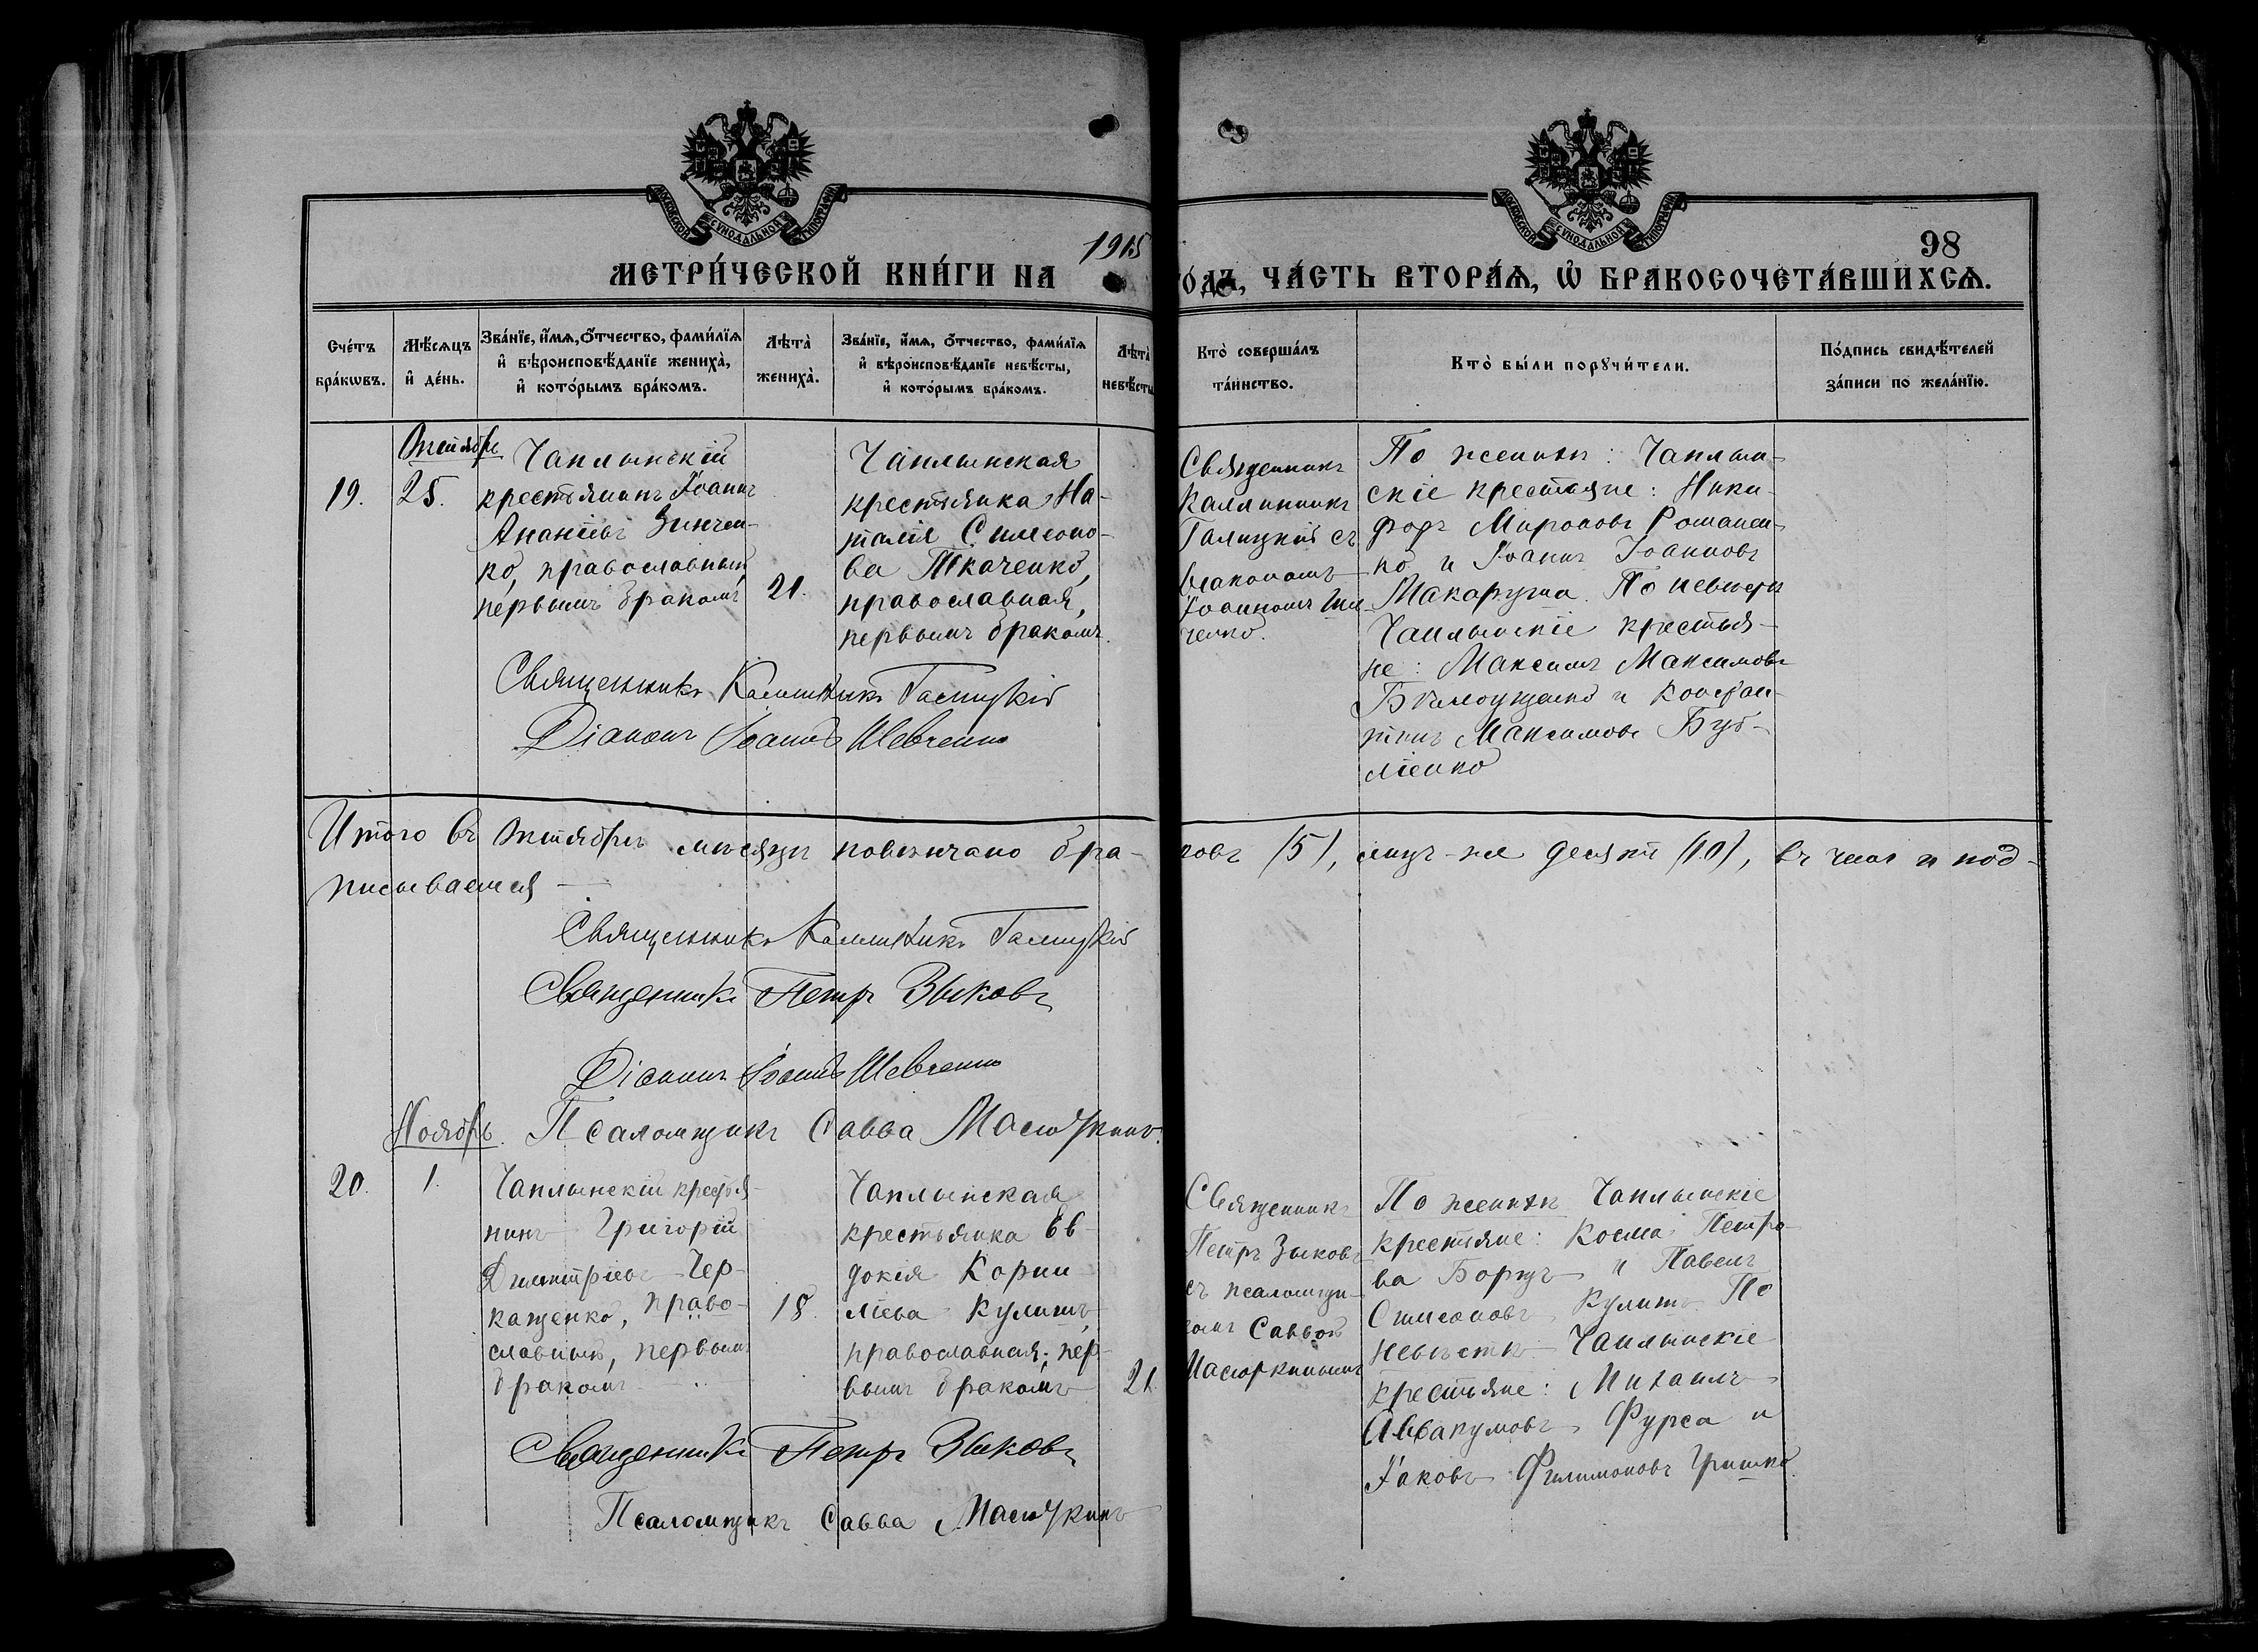 МОСКОВСКОЙ СѴНОДАЛЬНОЙ ТИПОГРАФІИ
МОСКОВСКОЙ СѴНОДАЛЬНОЙ ТИПОГРАФІИ
98
МЕТРИ́ЧЕСКОЙ КНИ́ГИ НА 1915 ГО́ДЪ, ЧА́СТЬ ВТОРА́Ѧ, Ѡ҆ БРАКОСОЧЕТА́ВШИХСѦ.
Сче́тъ
бра́кѡвъ.
Мѣ́сѧцъ
и҆ де́нь.
Зва́нїе, и҆́мѧ, ѻ҆́тчество, фами́лїѧ
и҆ вѣроисповѣ́данїе жениха̀,
и҆ кото́рымъ бра́комъ.
Лѣта̀
жениха̀.
Зва́нїе, и҆́мѧ, ѻ҆́тчество, фами́лїѧ
и҆ вѣроисповѣ́данїе невѣ́сты,
и҆ кото́рымъ бра́комъ.
Лѣта̀
невѣ́сты
Кто̀ соверша́лъ
та́инство.
Кто̀ бы́ли порꙋчи́тели.
По́дпись свидѣ́телей
за́писи по жела́нїю.
19.
Октябрь
25.
Чаплынскій
крестьянинъ Іоаннъ
Ананіевъ Зинчен-
ко, православный
первымъ бракомъ
21.
Чаплынская
крестьянка На-
талія Симеоно-
ва Ткаченко,
православная,
первымъ бракомъ.
Священникъ
Каллиникъ
Галицкій съ
діакономъ
Іоанномъ Шев-
ченко.
По женихѣ: Чаплын-
скіе крестьяне: Ники-
форъ Мироновъ Романен-
ко и Іоаннъ Іоанновъ
Макаруша. По невѣстѣ
Чаплынскіе крестья-
не: Максимъ Максимовъ
и Констан-
тинъ Максимовъ Буб-
ліенко
Священникъ Каллиникъ Галицкій
Діаконъ Іоаннъ Шевченко
Итого въ Октябрѣ мѣсяцѣ повѣнчано бра-
ковъ (5), лицъ-же десять (10), въ чемъ и под-
писываемся
Священникъ Каллиникъ Галицкій
Священникъ Петръ Зыковъ
Діаконъ Іоаннъ Шевченко
Псаломщикъ Савва Масюркинъ.
Ноябрь.
20.
1.
Чаплынскій крестья-
нинъ Григорій
Димитріевъ Чер-
кащенко, право-
славный, первымъ
бракомъ
18.
Чаплынская
крестьянка Ев-
докія Корни-
ліева Кулишъ,
православная, пер-
вымъ бракомъ
21
Священникъ
Петръ Зыковъ
съ псаломщи-
комъ Саввой
Масюркинымъ
По женихѣ Чаплынскіе
крестьяне: Косма Петро-
ва Борщъ и Павелъ
Симеоновъ Кулишъ. По
невѣстѣ Чаплынскіе
крестьяне: Михаилъ
Аввакумовъ Фурса и
Іаковъ Филимоновъ Гришко.
Священникъ Петръ Зыковъ
Псаломщикъ Савва Масюркинъ